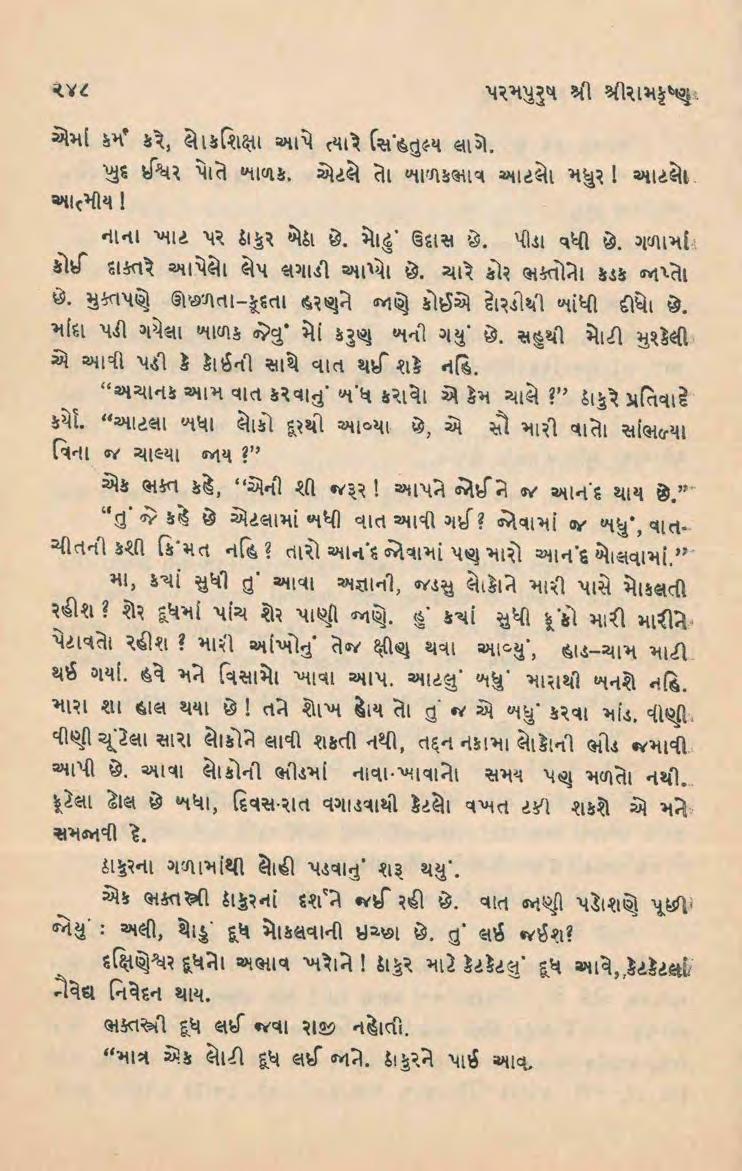 ૨૪૮ પરમપુરુષ શ્રી શ્રીરામકૃષ્ણ
એમાં કર્મ કરે, લોકશિક્ષા આપે ત્યારે સિંહતુલ્ય લાગે.
ખુદ ઈશ્વર પોતે બાળક. એટલે તો બાળકભાવ આટલો મધુર ! આટલો
આત્મીય !
નાના ખાટ પર ઠાકુર બેઠા છે. મોઢું ઉદાસ છે. પીડા વધી છે. ગળામાં
કોઈ દાક્તરે આપેલો લેપ લગાડી આપ્યો છે. ચારે કોર ભક્તોનો કડક જાપ્તો
છે. મુક્તપણે ઊછળતા-કૂદતા હરણને જાણે કોઈએ દોરડીથી બાંધી દીધો છે.
માંદા પડી ગયેલા બાળક જેવું મોં કરુણ બની ગયું છે. સહુથી મોટી મુશ્કેલી
એ આવી પડી કે કોઈની સાથે વાત થઈ શકે નહિ.
“અચાનક આમ વાત કરવાનું બંધ કરાવો એ કેમ ચાલે ?” ઠાકુરે પ્રતિવાદ
કર્યો. “આટલા બધા લોકો દૂરથી આવ્યા છે, એ સૌ મારી વાતો સાંભળ્યા
વિના જ ચાલ્યા જાય ?”
એક ભક્ત કહે, “એની શી જરૂર ! આપને જોઈને જ આનંદ થાય છે.”
“તું જે કહે છે એટલામાં બધી વાત આવી ગઈ ? જોવામાં જ બધું, વાત-
ચીતની કશી કિંમત નહિ ? તારો આનંદ જોવામાં પણ મારો આનંદ બોલવામાં.”
મા, ક્યાં સુધી તું આવા અજ્ઞાની, જડસુ લોકોને મારી પાસે મોકલતી
રહીશ ? શેર દૂધમાં પાંચ શેર પાણી જાણે. હું ક્યાં સુધી ફૂંકો મારી મારીને
પેટાવતો રહીશ ? મારી આંખોનું તેજ ક્ષીણ થવા આવ્યું, હાડ-ચામ માટી
થઈ ગયાં. હવે મને વિસામો ખાવા આપ. આટલું બધું મારાથી બનશે નહિ.
મારા શા હાલ થયા છે ! તને શોખ હોય તો તું જ એ બધું કરવા માંડ. વીણી
વીણી ચૂંટેલા સારા લોકોને લાવી શકતી નથી, તદ્દન નકામા લોકોની ભીડ જમાવી
આપી છે. આવા લોકોની ભીડમાં નાવા-ખાવાનો સમય પણ મળતો નથી.
ફૂટેલા ઢોલ છે બધા, દિવસ-રાત વગાડવાથી કેટલો વખત ટકી શકશે એ મને
સમજાવી દે.
ઠાકુરના ગળામાંથી લોહી પડવાનું શરૂ થયું.
એક ભક્તસ્ત્રી ઠાકુરનાં દર્શને જઈ રહી છે. વાત જાણી પડોશણે પૂછી
જોયું : અલી, થોડું દૂધ મોકલવાની ઇચ્છા છે. તું લઈ જઈશ?
દક્ષિણેશ્વર દૂધનો અભાવ ખરોને ! ઠાકુર માટે કેટકેટલું દૂધ આવે, કેટકેટલાં
નૈવેદ્ય નિવેદન થાય.
ભક્તસ્ત્રી દૂધ લઈ જવા રાજી નહોતી.
“માત્ર એક લોટી દૂધ લઈ જાને. ઠાકુરને પાઈ આવ.